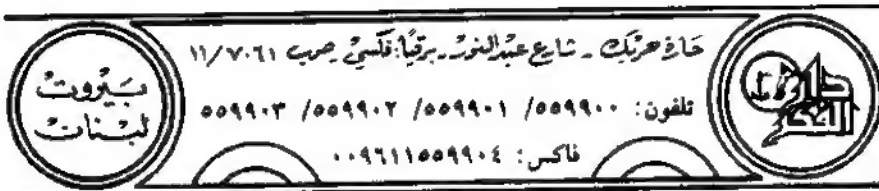 دار الفكر
حارة حريك ـ شارع عبد النور ـ برقيًا: فكسي ـ صرب ١١/٧٠٦١
تلفون: ٥٥٩٩٠٠/ ٥٥٩٩٠١/ ٥٥٩٩٠٢/ ٥٥٩٩٠٣
فاكس: ٠٠٩٦١١٥٥٩٩٠٤
بيروت
لبنان